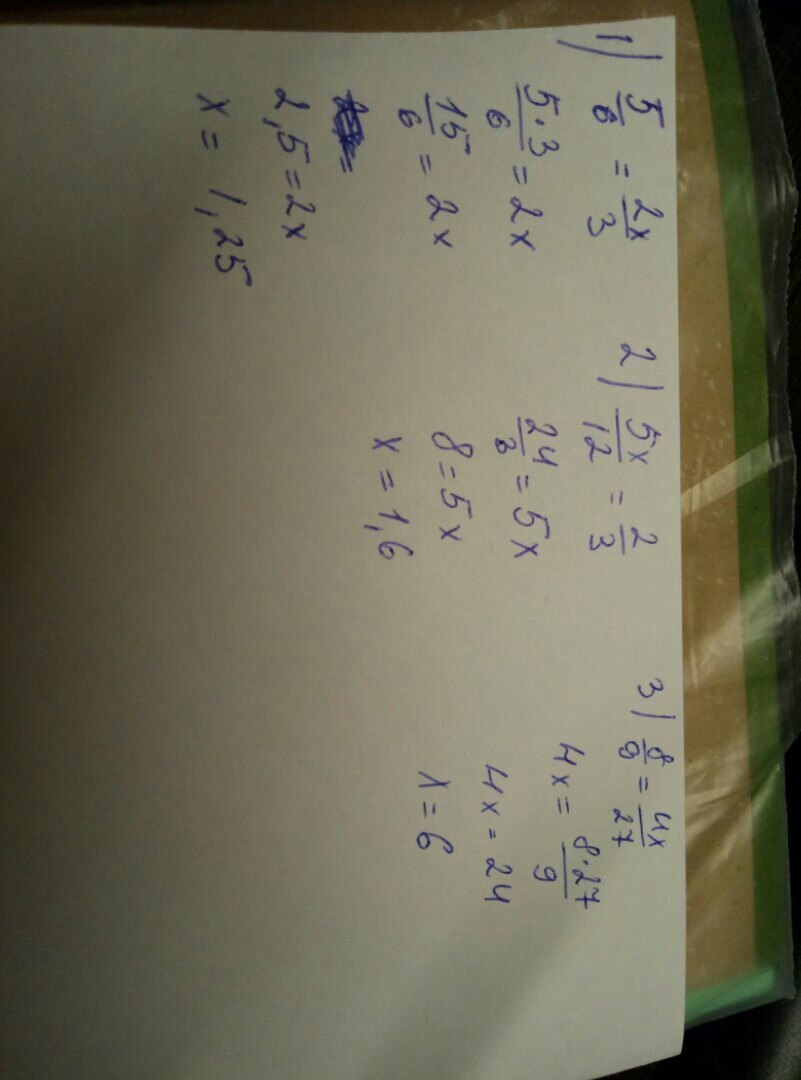 1) 5/6 = 2x/3
5·3/6 = 2x
15/6 = 2x
=
2,5 = 2x
x = 1,25
2) 5x/12 = 2/3
24/3 = 5x
8 = 5x
x = 1,6
3) 8/9 = 4x/27
4x = 8·27/9
4x = 24
x = 6